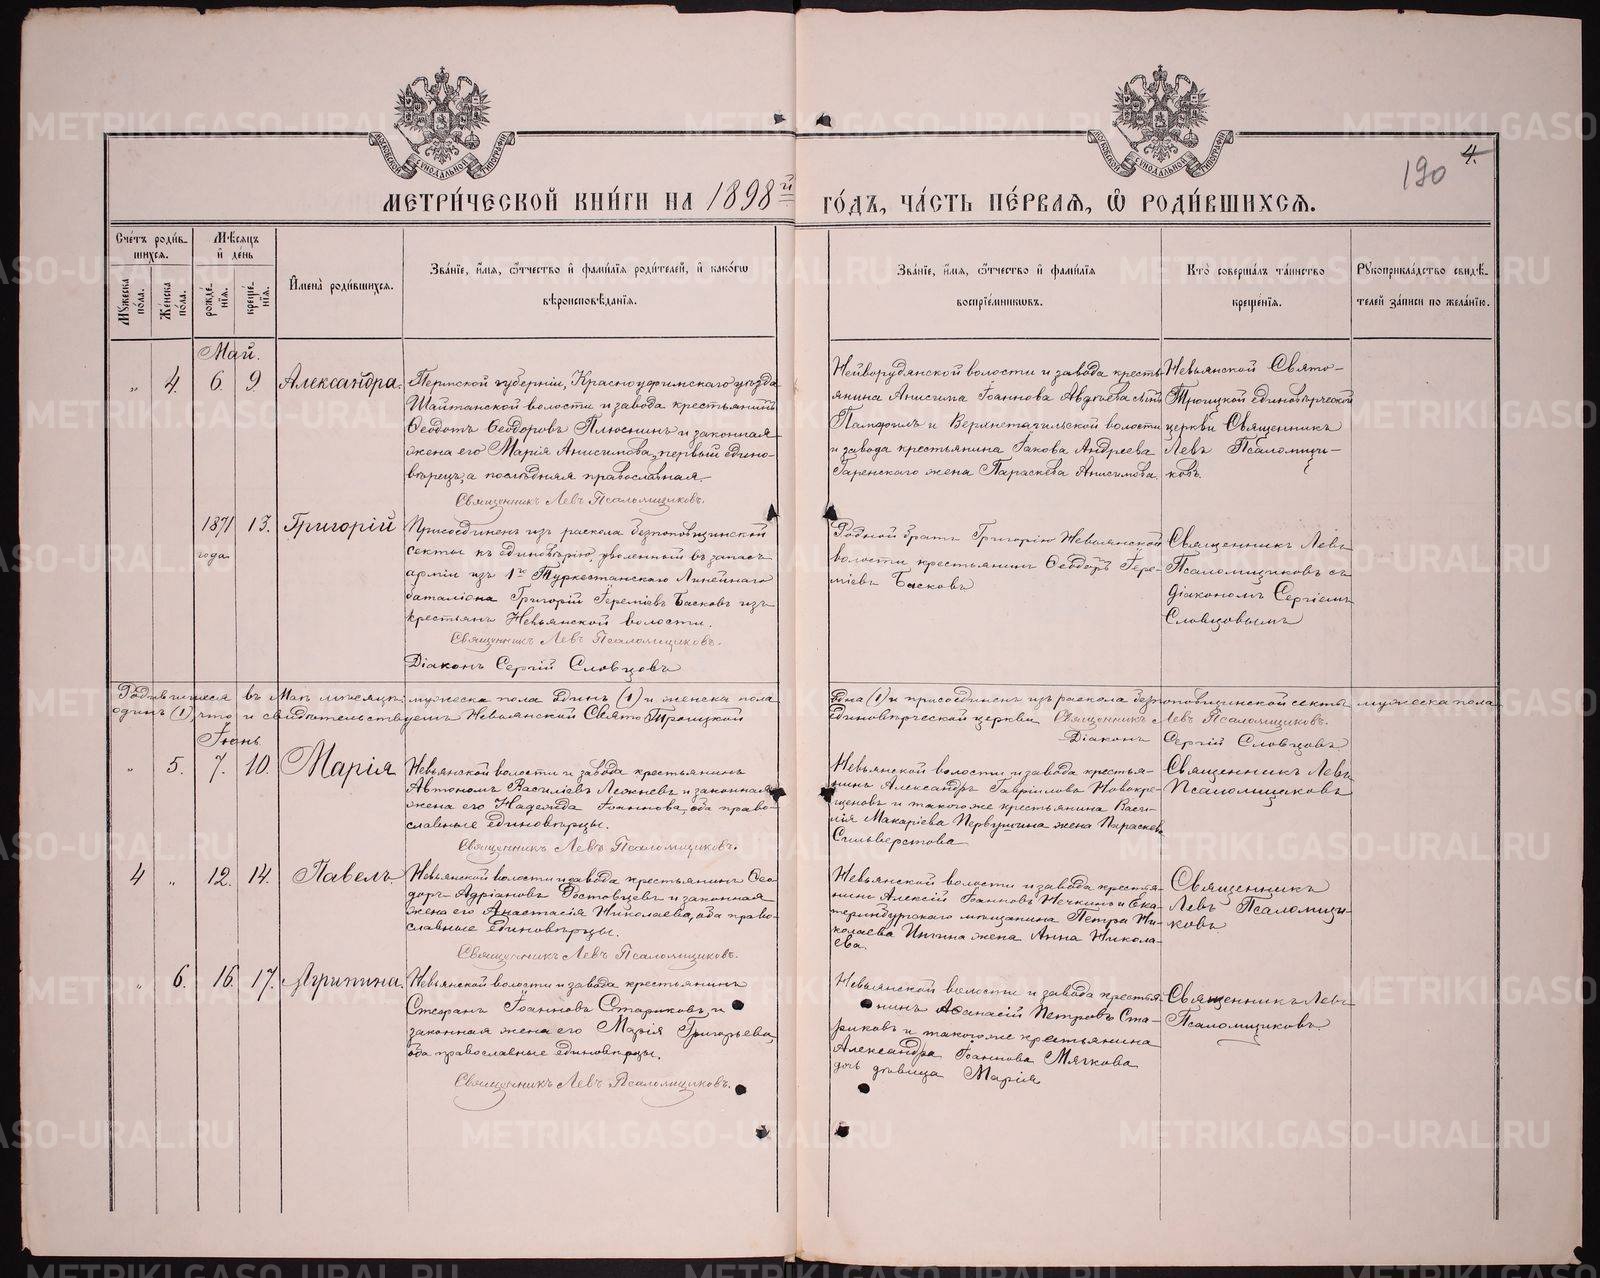 МОСКОВСКОЙ СѴНОДАЛЬНОЙ ТИПОГРАФІИ
МОСКОВСКОЙ СѴНОДАЛЬНОЙ ТИПОГРАФІИ
190 4.
МЕТРИ́ЧЕСКОЙ КНИ́ГИ НА 1898й ГО́ДЪ, ЧА́СТЬ ПЕ́РВАЯ, Ѿ РОДИ́ВШИХСЯ.
Сче́тъ роди́в-
шихся.
Му́жеска по́ла.
Же́нска по́ла.
Мѣ́сяцъ
и҆ де́нь
рожде́-
нїя.
креще́-
нїя.
И҆мена̀ роди́вшихся.
Зва́нїе, и҆́мя, ѻ҆́тчество и҆ фами́лїя роди́телей, и҆ како́гѡ
вѣроисповѣ́данїя.
Зва́нїе, и҆́мя, ѻ҆́тчество и҆ фами́лїя
воспрїе́мникѡвъ.
Кто̀ соверша́лъ та́инство
креще́нїя.
Рꙋкоприкла́дство свидѣ́-
телей за́писи по жела́нїю.
Май.
„ 4 6. 9. Александра.
Пермской губерніи, Красноуфимскаго уѣзда
Шайтанской волости и завода крестьянинъ
Ѳеодотъ Ѳеодоровъ Плюснинъ и законная
жена его Марія Анисимова, первый едино-
вѣрецъ, а послѣдняя православная.
Священникъ Левъ Псаломщиковъ.
Нейворудянской волости и завода кресть-
янина Анисима Іоаннова Авдѣева сынъ
Памфилъ и Верхнетагильской волости
и завода крестьянина Іакова Андреева
Гаренскаго жена Параскева Анисимова.
Невьянской Свято-
Троицкой единовѣрческой
церкви Священникъ
Левъ Псаломщи-
ковъ.
1871
года
13. Григорій
Присоединенъ изъ раскола безпоповщинской
секты къ единовѣрію, уволенный въ запасъ
арміи изъ 1го Туркестанскаго Линейнаго
баталіона Григорій Іереміевъ Басковъ изъ
крестьянъ Невьянской волости.
Священникъ Левъ Псаломщиковъ.
Діаконъ Сергій Словцовъ
Родной братъ Григорію Невьянской
волости крестьянинъ Ѳеодоръ Іере-
міевъ Басковъ
Священникъ Левъ
Псаломщиковъ съ
діакономъ Сергіемъ
Словцовымъ
Родившіеся въ Маѣ мѣсяцѣ: мужеска пола Единъ (1) и женска пола
Една (1) и присоединенъ изъ раскола безпоповщинской секты мужеска пола
одинъ (1), что и свидѣтельствуемъ Невьянской Свято Троицкой
Единовѣрческой церкви Священникъ Левъ Псаломщиковъ.
Діаконъ Сергій Словцовъ
Іюнь.
„ 5. 7. 10. Марія
Невьянской волости и завода крестьянинъ
Автономъ Василіевъ Лежневъ и законная
жена его Надежда Іоаннова, оба право-
славные единовѣрцы.
Священникъ Левъ Псаломщиковъ.
Невьянской волости и завода крестья-
нинъ Александръ Гавріиловъ Новокре-
щеновъ и такогоже крестьянина Васи-
лія Макаріева Первушина жена Параскева
Сильверстова
Священникъ Левъ
Псаломщиковъ
4 „ 12. 14. Павелъ
Невьянской волости и завода крестьянинъ Ѳео-
доръ Адріановъ Ростовцевъ и законная
жена его Анастасія Николаева, оба право-
славные единовѣрцы.
Священникъ Левъ Псаломщиковъ.
Невьянской волости и завода крестья-
нинъ Алексій Іоанновъ Нечкинъ и Ека-
теринбургскаго мѣщанина Петра Ни-
колаева жена Анна Никола-
ева.
Священникъ
Левъ Псаломщи-
ковъ
„ 6. 16. 17. Агрипина.
Невьянской волости и завода крестьянинъ
Стефанъ Іоанновъ Стариковъ и
законная жена его Марія Григорьева,
оба православные единовѣрцы.
Священникъ Левъ Псаломщиковъ.
Невьянской волости и завода крестья-
нинъ Аѳанасій Петровъ Ста-
риковъ и такогоже крестьянина
Александра Іоаннова Мягкова
дочь дѣвица Марія
Священникъ Левъ
Псаломщиковъ.
METRIKI.GASO-URAL.RU